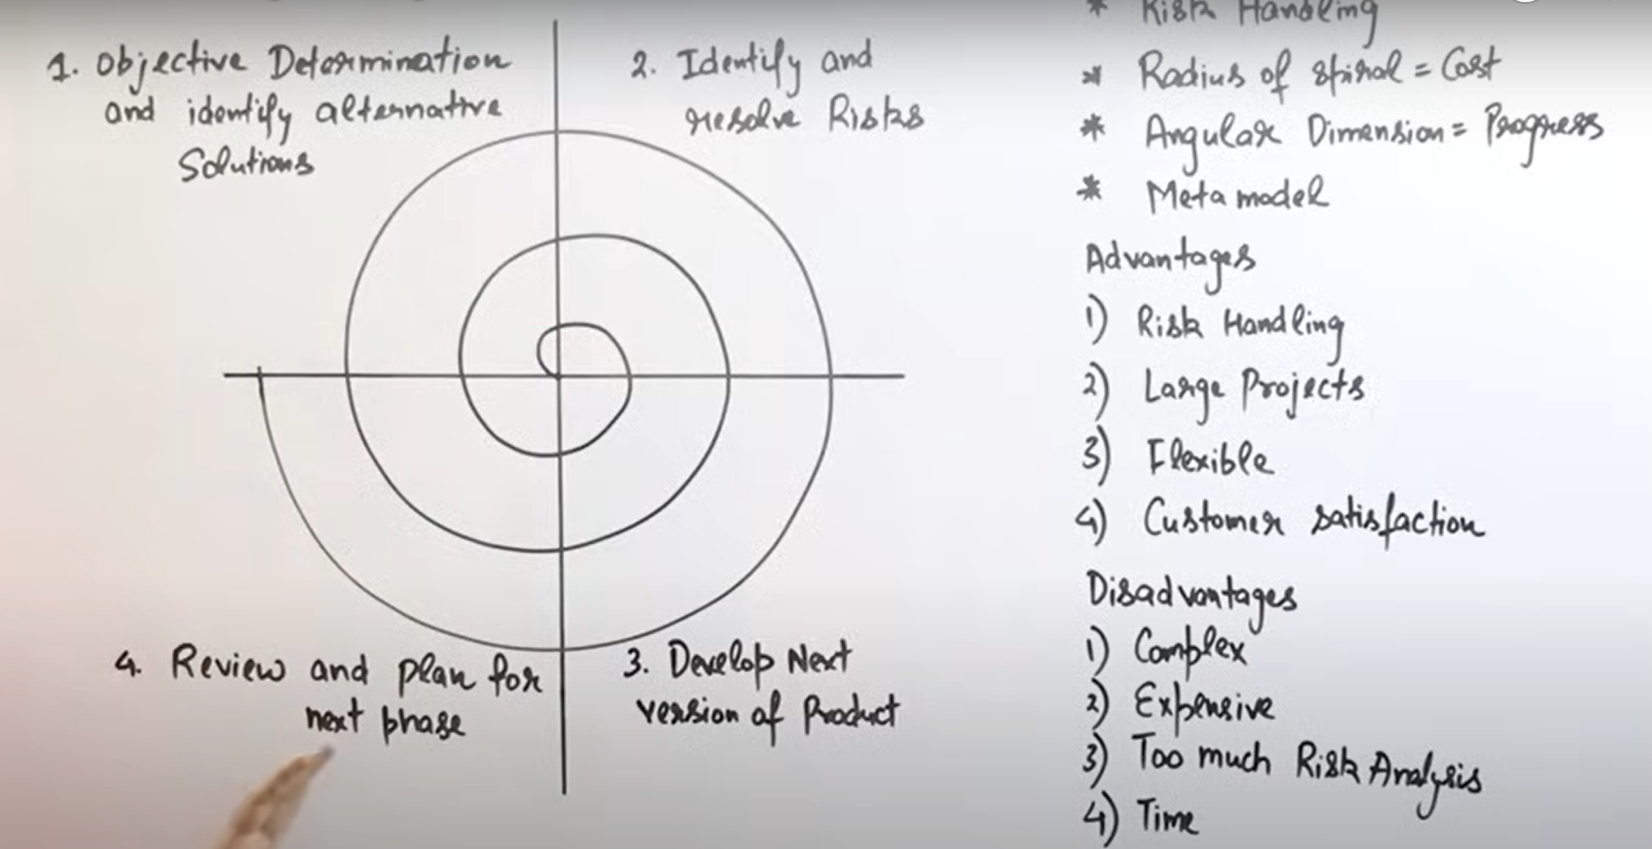 1. Objective Determination
and identify alternative
Solutions
2. Identify and
resolve Risks
4. Review and plan for
next phase
3. Develop Next
version of Product
* Risk Handling
* Radius of spiral = Cost
* Angular Dimension = Progress
* Meta model
Advantages
1) Risk Handling
2) Large Projects
3) Flexible
4) Customer satisfaction
Disadvantages
1) Complex
2) Expensive
3) Too much Risk Analysis
4) Time